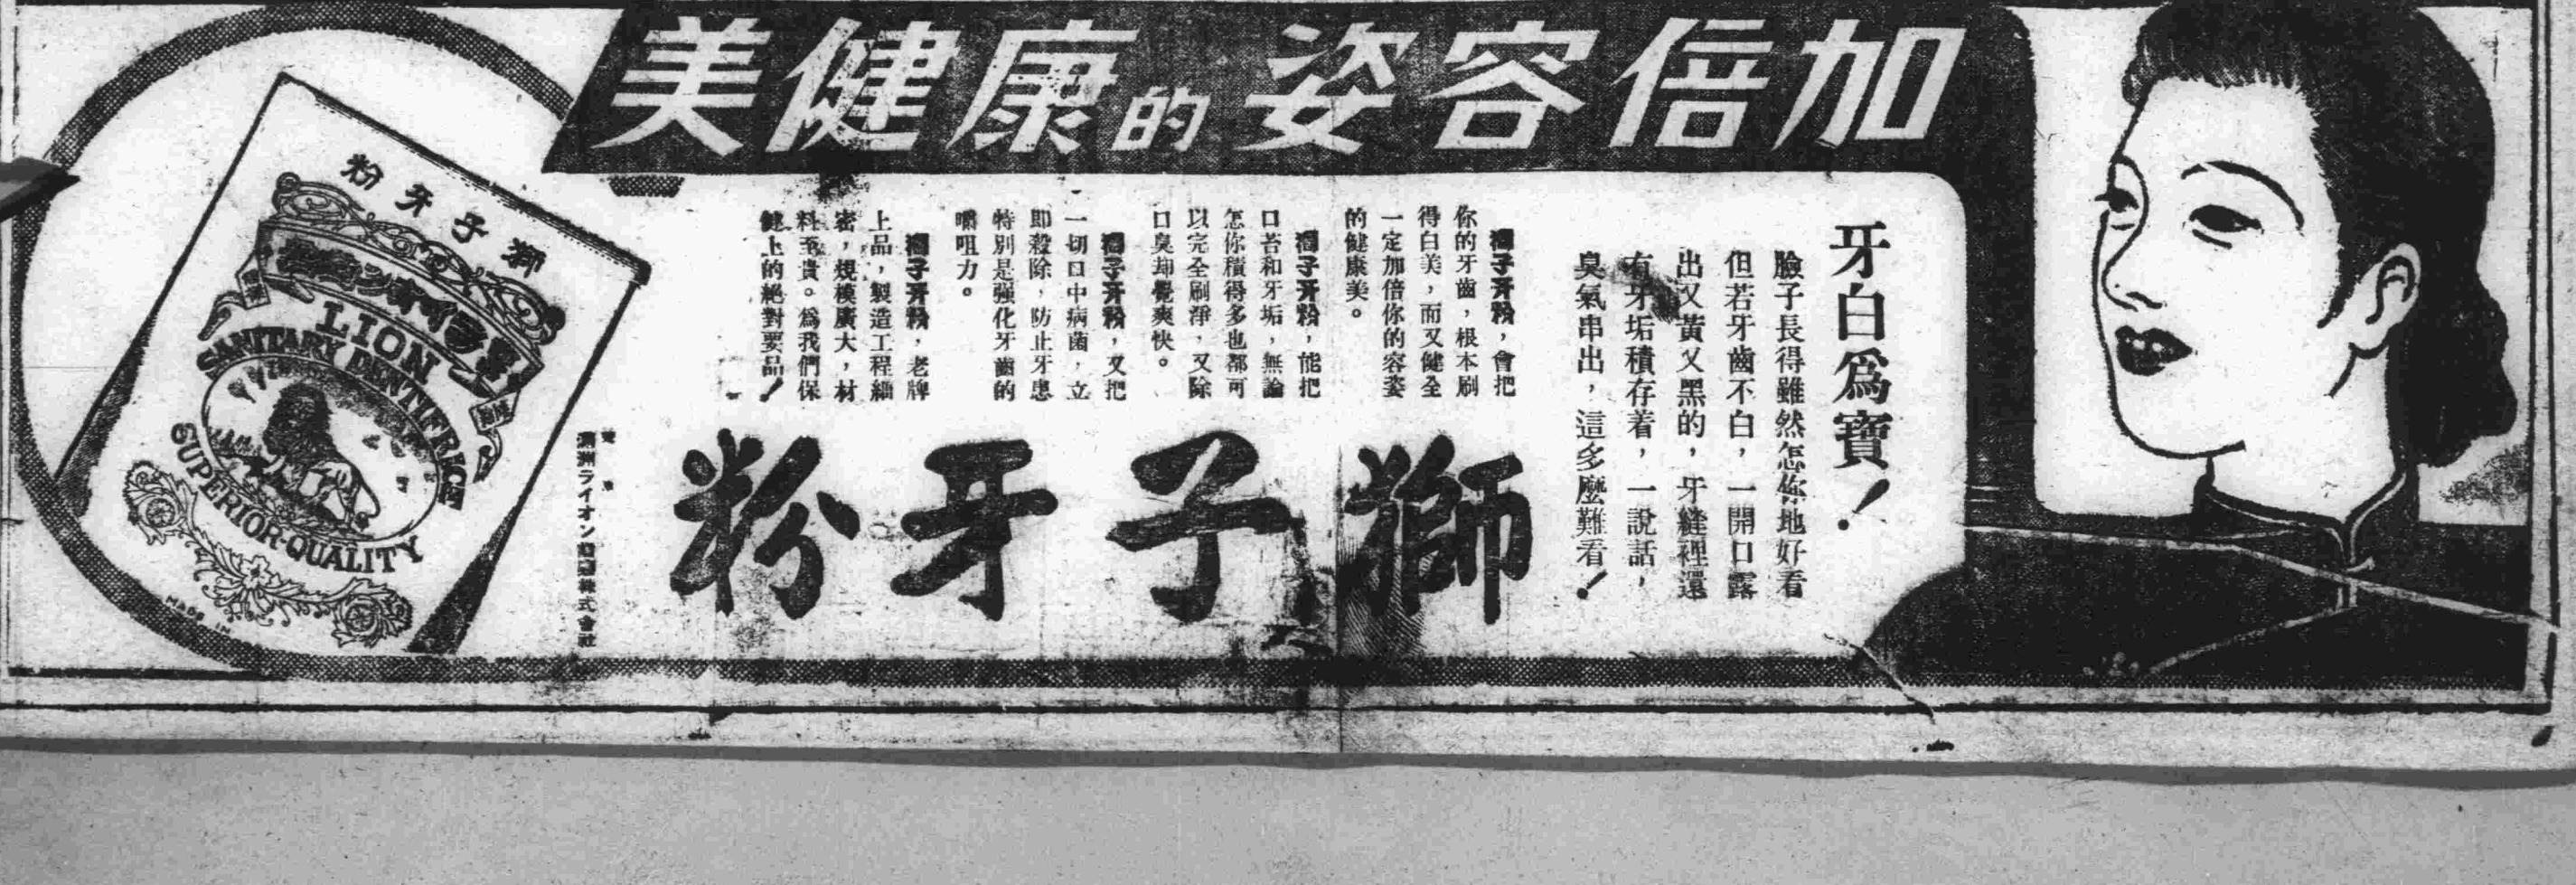 加倍容姿的康健美
牙白爲寶！
臉子長得雖然怎你地好看
但若牙齒不白，一開口露
出又黃又黑的，牙縫裡還
有牙垢積存着，一說話，
臭氣串出，這多麼難看！
獅子牙粉，會把
你的牙齒，根本刷
得白美，而又健全
一定加倍你的容姿
的健康美。
獅子牙粉，能把
口苔和牙垢，無論
怎你積得多也都可
以完全刷淨，又除
口臭却覺爽快。
獅子牙粉，又把
一切口中病菌，立
即殺除，防止牙患
特別是强化牙齒的
嚼咀力。
獅子牙粉，老牌
上品，製造工程緬
密，規模廣大，材
料至貴。爲我們保
健上的絕對要品！
獅子牙粉
滿洲ライオン齒磨株式會社
獅子牙粉
LION
SANITARY DENTIFRICE
SUPERIOR-QUALITY
MADE IN